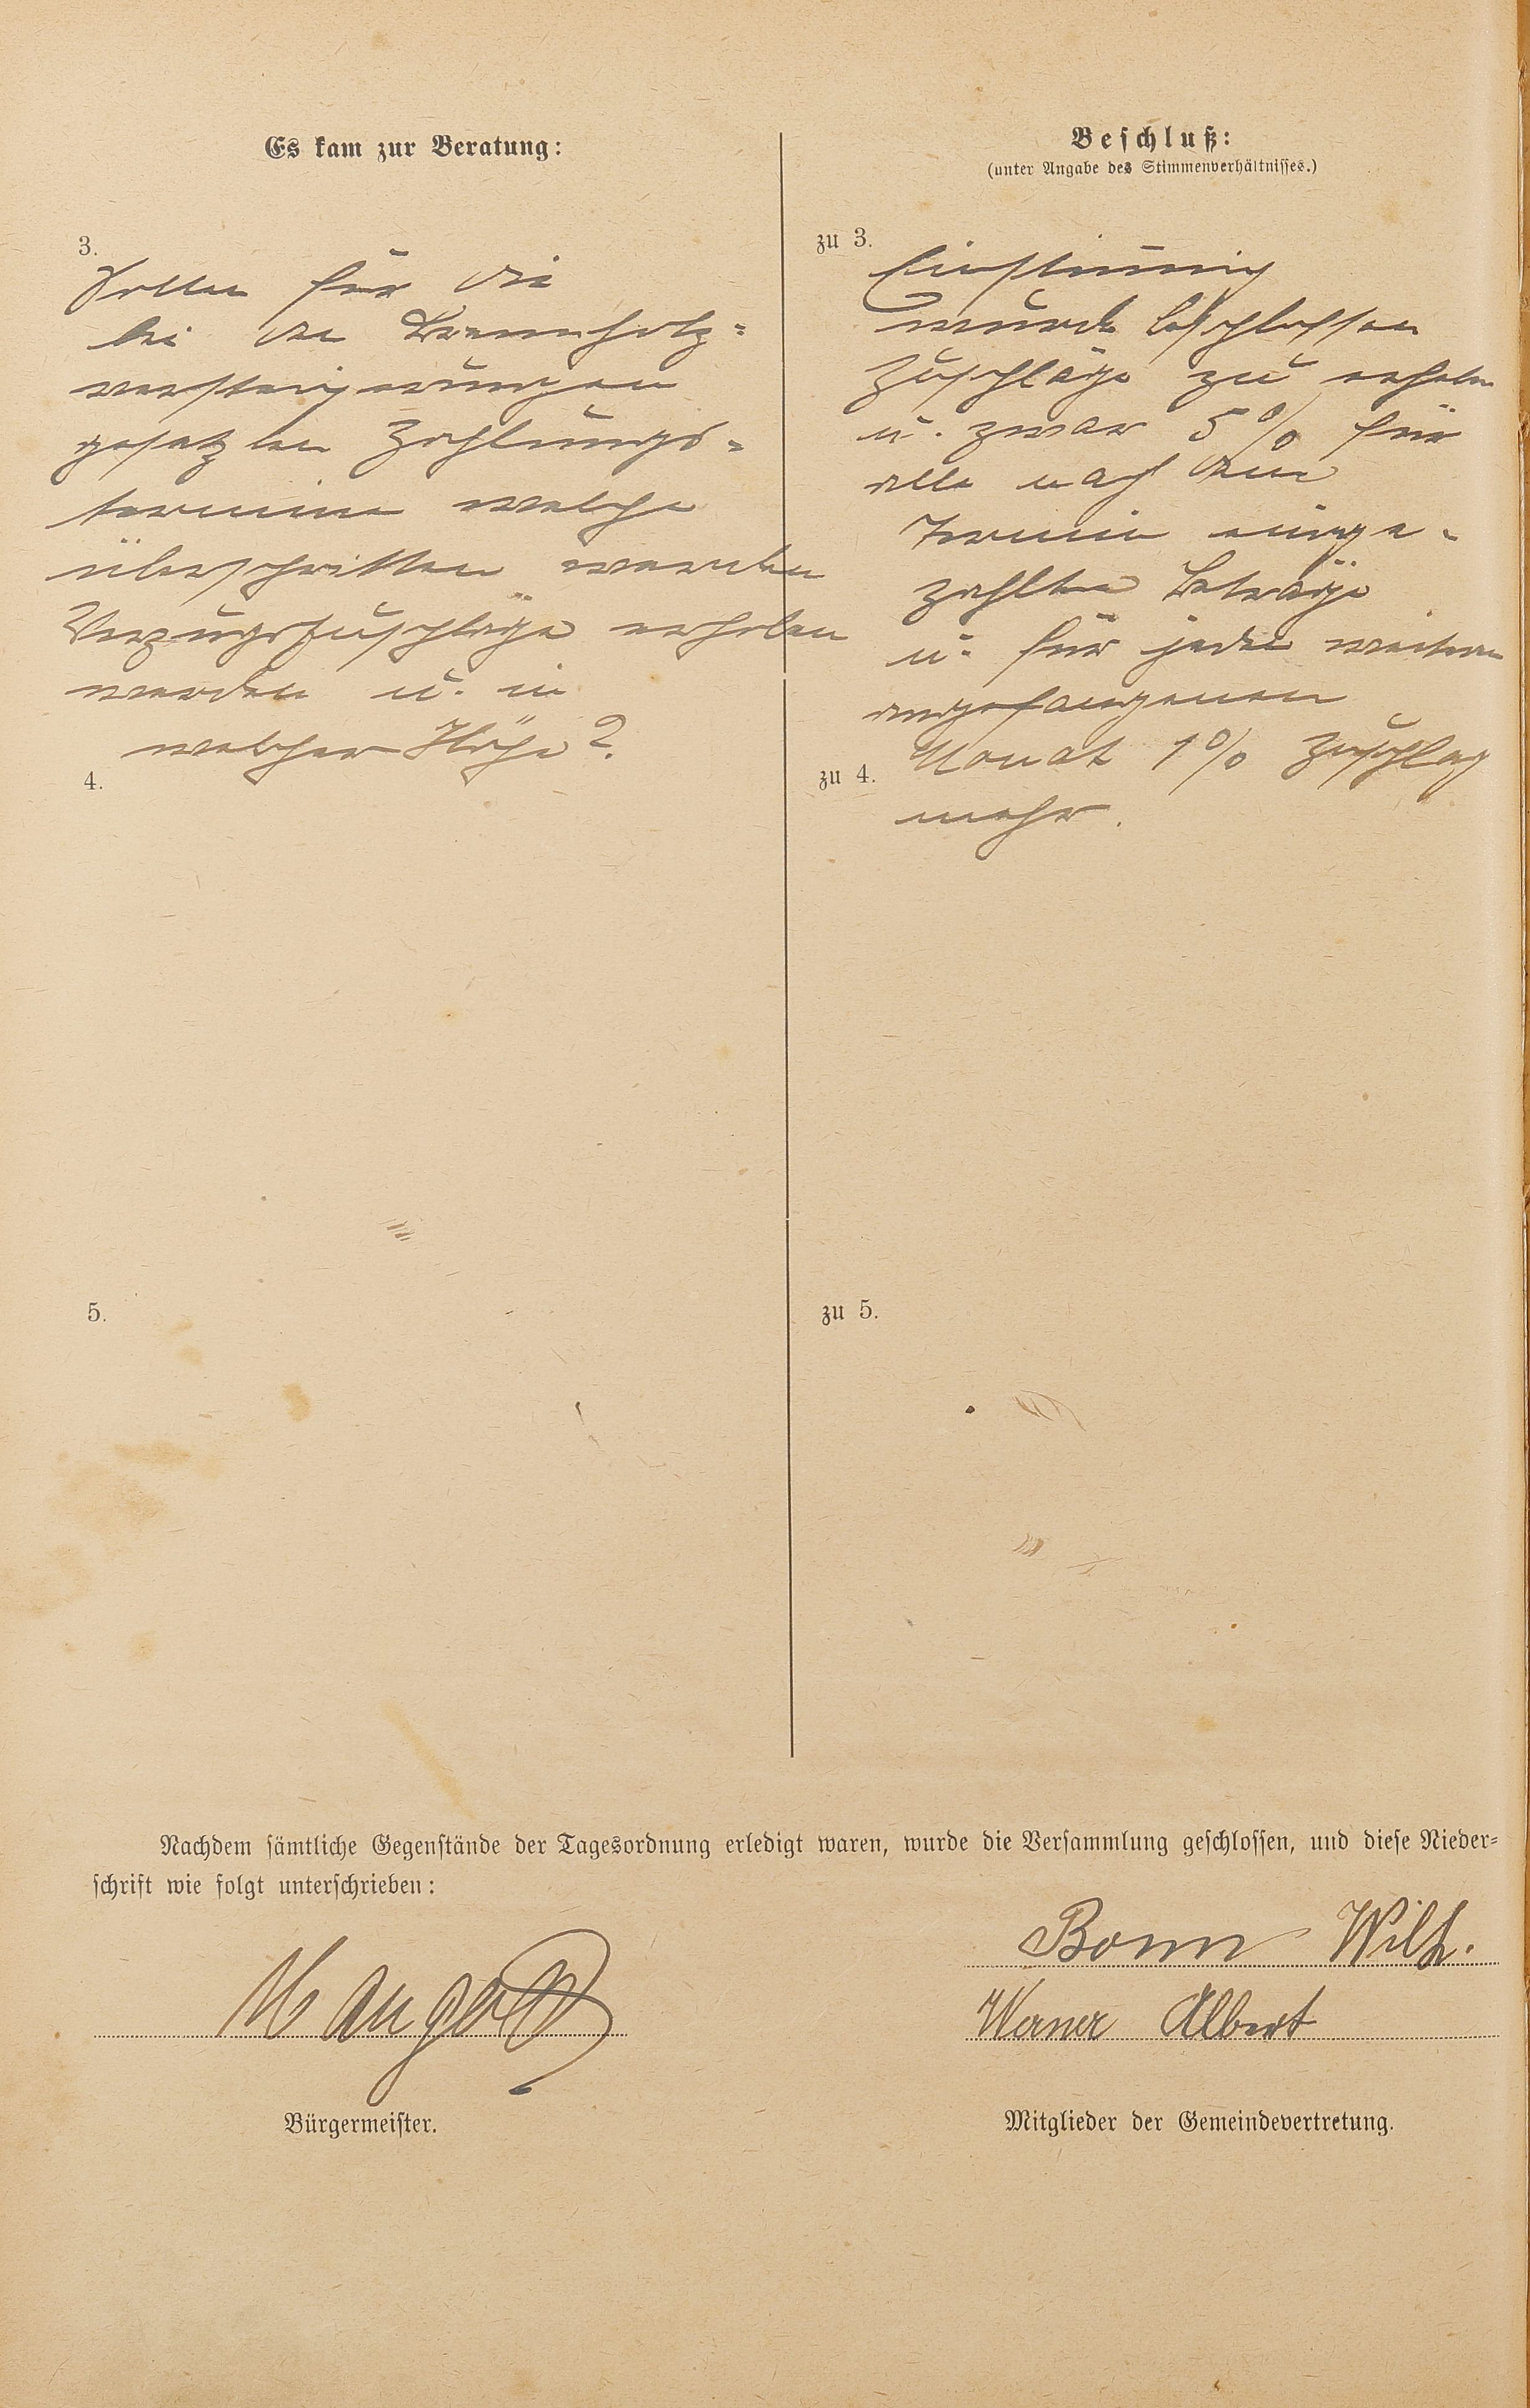 Es kam zur Beratung:
3.
Sollen für die
bei den Brennholz=
versteigerungen
gesetzten Zahlungs=
termine welche
überschritten werden
Verzugszuschläge erhoben
werden u. in
welcher Höhe?
4.
5.
Beschluß:
(unter Angabe des Stimmenverhältnisses.)
zu 3.
Einstimmig
wurde beschlossen
Zuschläge zu erheben
u. zwar 5% für
alle nach dem
Termin einge-
zahlten Beträge
u. für jeden weiteren
angefangenen
Monat 1% Zuschlag
zu 4.
mehr.
zu 5.
Nachdem sämtliche Gegenstände der Tagesordnung erledigt waren, wurde die Versammlung geschlossen, und diese Nieder=
schrift wie folgt unterschrieben:
Bonn Wilh.
Werner Albert
Bürgermeister.
Mitglieder der Gemeindevertretung.